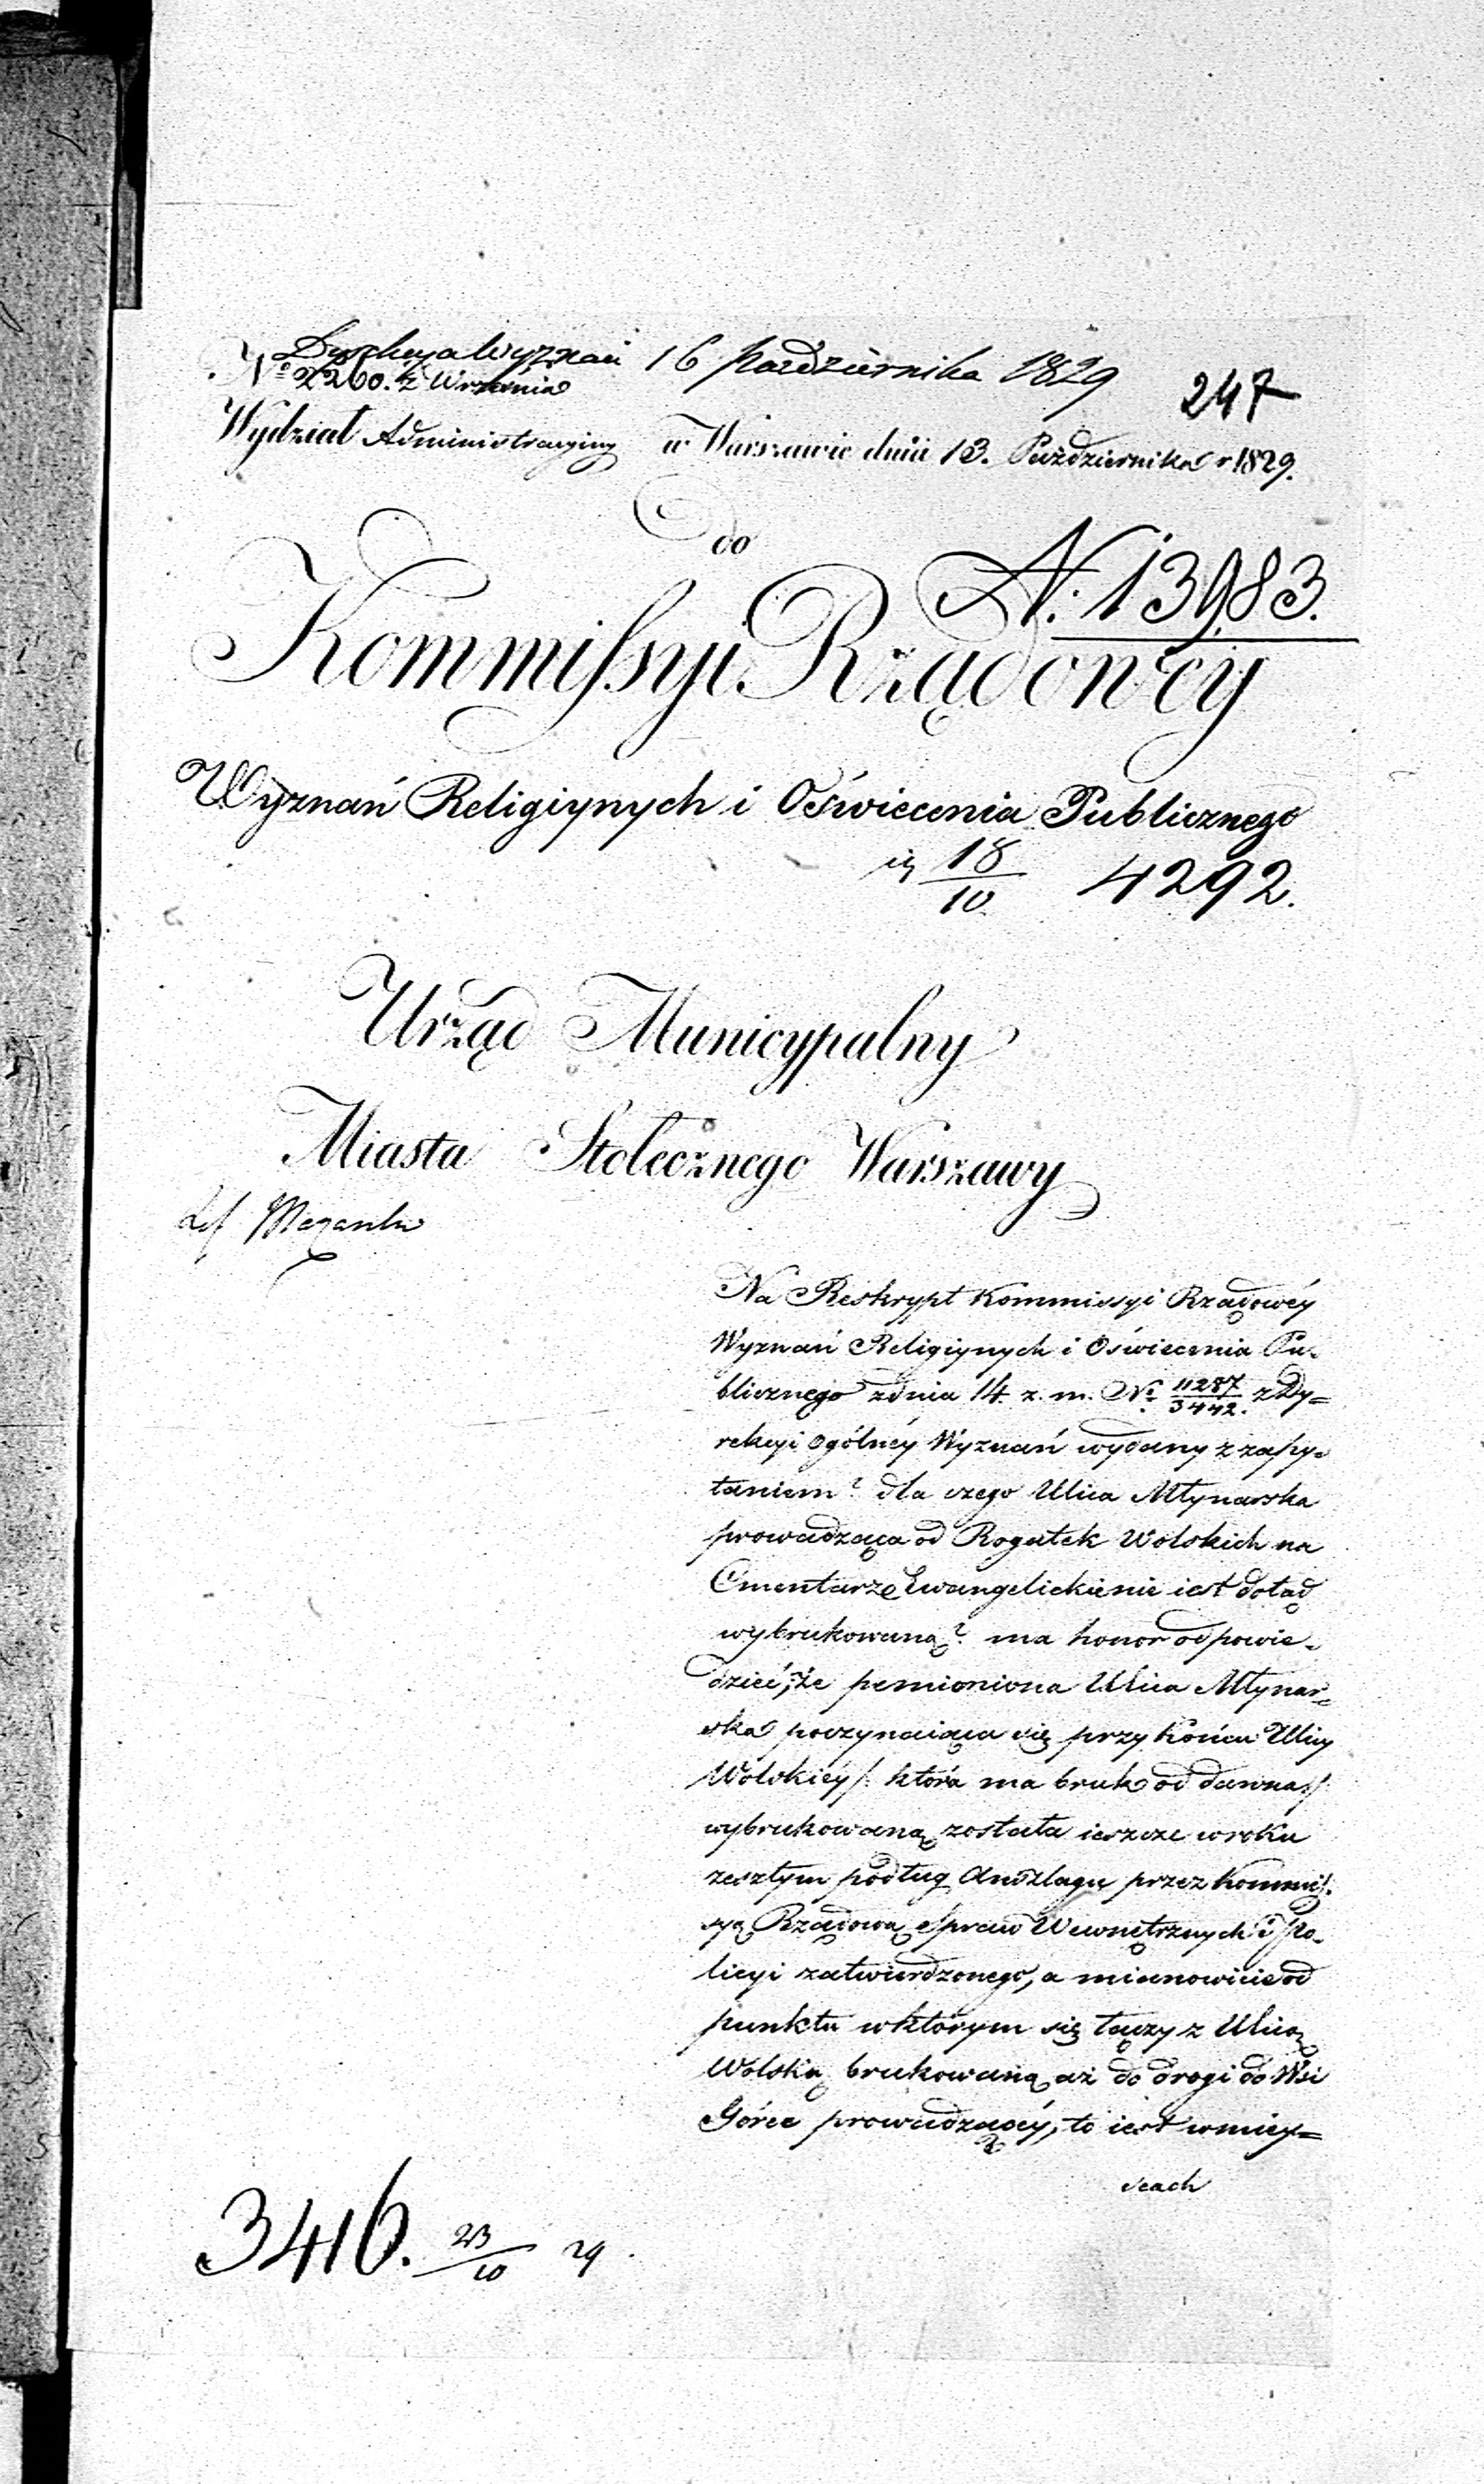 Dyrekcya Wyznań 16 Października 1829
No 2260. z Września
247
Wydział Administracyiny w Warszawie dnia 13. Października r 1829.
do
N. 13983.
Kommissyi Rządowey
Wyznań Religiynych i Oświecenia Publicznego
18/10 4292.
Urząd Municypalny
Miasta Stołecznego Warszawy
Na Reskrypt Kommissyi Rządowéy
Wyznań Religiynych i Oświecenia Pu-
blicznego z dnia 14. z. m. No 11287/3442. z Dy=
rekcyi Ogólnéy Wyznań wydany z zapy-
taniem? dla czego Ulica Młynarska
prowadząca od Rogatek Wolskich na
Cmentarze Ewangelickie nie iest dotąd
wybrukowaną? ma honor odpowie-
dzieć, że pomieniona Ulica Młynar-
ska poczynaiąca się przy końcu Ulicy
Wolskiéy /: która ma bruk od dawna :/
wybrukowaną została ieszcze w roku
zeszłym podług Anszlagu przez Kommis-
syą Rządową Spraw Wewnętrznych i Po-
licyi zatwierdzonego, a mianowicie od
punktu w którym się łączy z Ulicą
Wolską brukowaną aż do drogi do Wsi
Górce prowadzącéy, to iest w miey=
scach
3416. 23/10 29